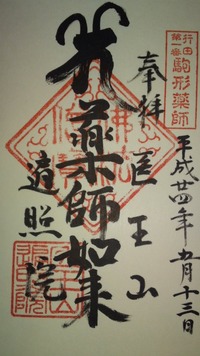 行田
第一番
駒形薬師
平成廿四年五月十三日
奉拝
医王山
薬師如来
遍照院